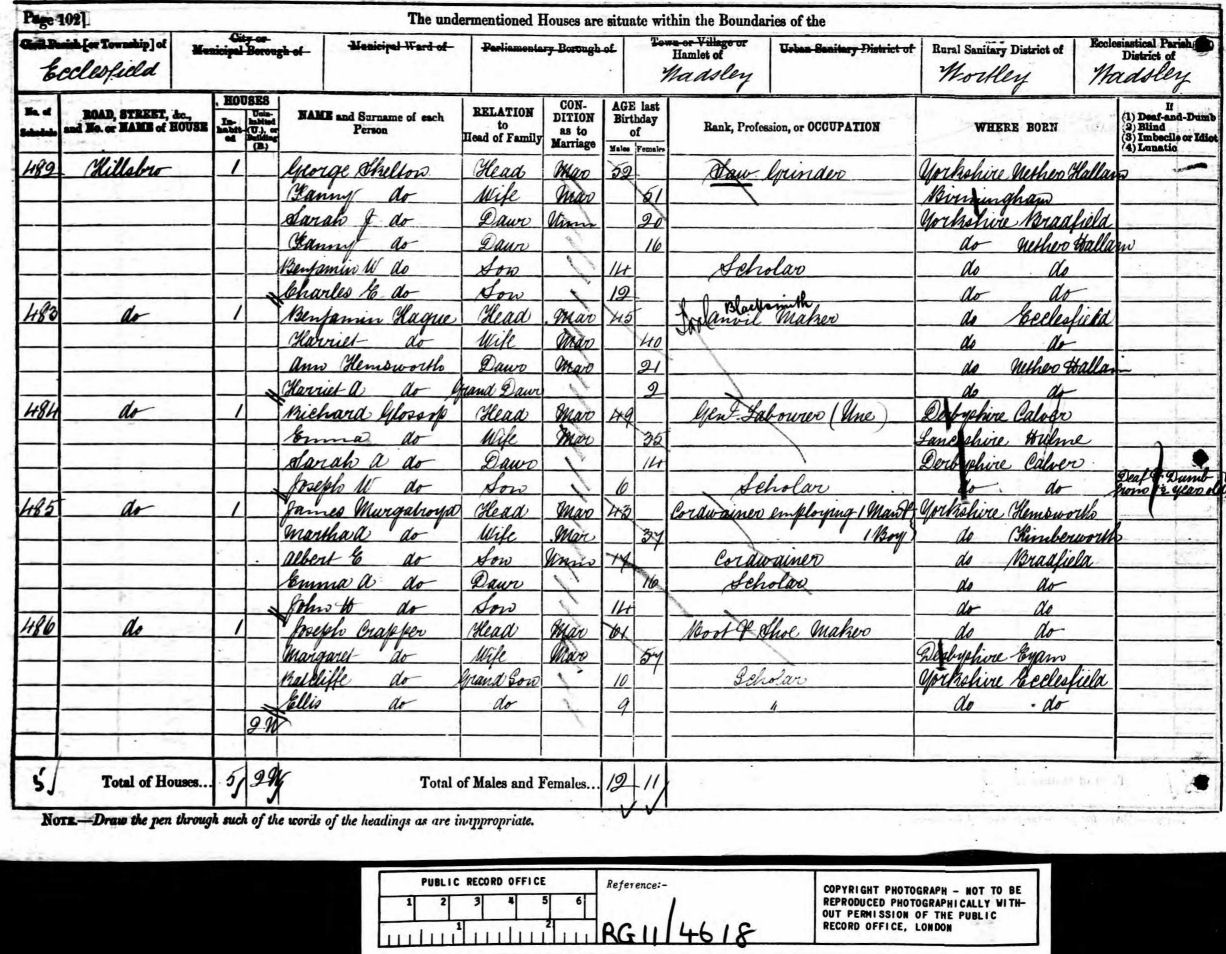 Page 102] The undermentioned Houses are situate within the Boundaries of the
Civil Parish [or Township] of City or Municipal Borough of Municipal Ward of Parliamentary Borough of Town or Village or Hamlet of Urban Sanitary District of Rural Sanitary District of Ecclesiastical Parish or District of
Ecclesfield Wadsley Wortley Wadsley
No. of Schedule ROAD, STREET, &c., and No. or NAME of HOUSE HOUSES Inhabited Uninhabited (U.), or Building (B.) NAME and Surname of each Person RELATION to Head of Family CONDITION as to Marriage AGE last Birthday of Males Females Rank, Profession, or OCCUPATION WHERE BORN If (1) Deaf-and-Dumb (2) Blind (3) Imbecile or Idiot (4) Lunatic
482 Hillsbro 1 George Skelton Head Mar 52 Saw Grinder Yorkshire Nether Hallam
Fanny do Wife Mar 51 Birmingham
Sarah J do Daur Unm 20 Yorkshire Bradfield
Fanny do Daur 16 do Nether Hallam
Benjamin W do Son 14 Scholar do do
Charles E do Son 12 do do
483 do 1 Benjamin Hague Head Mar 45 Anvil Blacksmith Maker do Ecclesfield
Harriet do Wife Mar 40 do do
Ann Hemsworth Daur Mar 21 do Nether Hallam
Harriet A do Grand Daur 2 do do
484 do 1 Richard Glossop Head Mar 49 Genl. Labourer (Une) Derbyshire Calver
Emma do Wife Mar 35 Lancashire Hulme
Sarah A do Daur 14 Derbyshire Calver
Joseph W do Son 6 Scholar do do Deaf & Dumb from 1½ year old
485 do 1 James Murgatroyd Head Mar 43 Cordwainer employing 1 Man & 1 Boy} Yorkshire Hemsworth
Martha A do Wife Mar 37 do Kimberworth
Albert E do Son Unm 17 Cordwainer do Bradfield
Emma A do Daur 16 Scholar do do
John W do Son 14 do do
486 do 1 Joseph Crapper Head Mar 61 Boot & Shoe Maker do do
Margaret do Wife Mar 57 Derbyshire Eyam
Ratcliffe do Grand Son 10 Scholar Yorkshire Ecclesfield
Ellis do do 9 " do do
5 Total of Houses... 5 Total of Males and Females... 12 11
NOTE.—Draw the pen through such of the words of the headings as are inappropriate.
PUBLIC RECORD OFFICE
1 2 3 4 5 6
1 2
Reference:-
RG11/4618
COPYRIGHT PHOTOGRAPH - NOT TO BE
REPRODUCED PHOTOGRAPHICALLY WITH-
OUT PERMISSION OF THE PUBLIC
RECORD OFFICE, LONDON